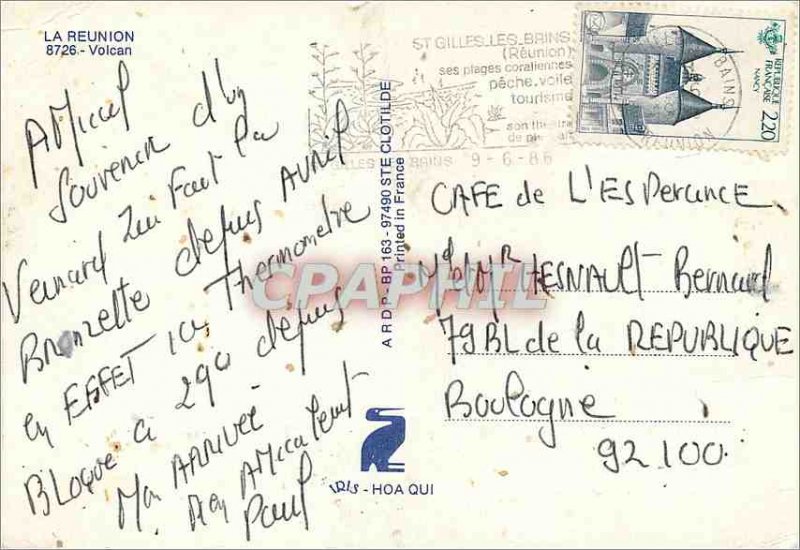 LA REUNION
8726 - Volcan
AMical
Souvenir d'un
Veinard qui Fait la
Bronzette depuis AVRIL
en EFFET ici Thermometre
BLOQUé a 29° depuis
Mon ARRIVEE
Paul
ARDP - BP 163 - 97490 STE CLOTILDE
Printed in France
IRIS - HOA QUI
ST GILLES LES BAINS
(Réunion)
ses plages coraliennes
pêche.voile
tourisme
son théatre
de plein air
GILLES BAINS 9-6-86
REPUBLIQUE
FRANÇAISE
NANCY
2,20
CAFE de L'ESPerance
Md et MR HESNAULT Bernard
79 BL de la REPUBLIQUE
Boulogne
92.100
CPAPHIL